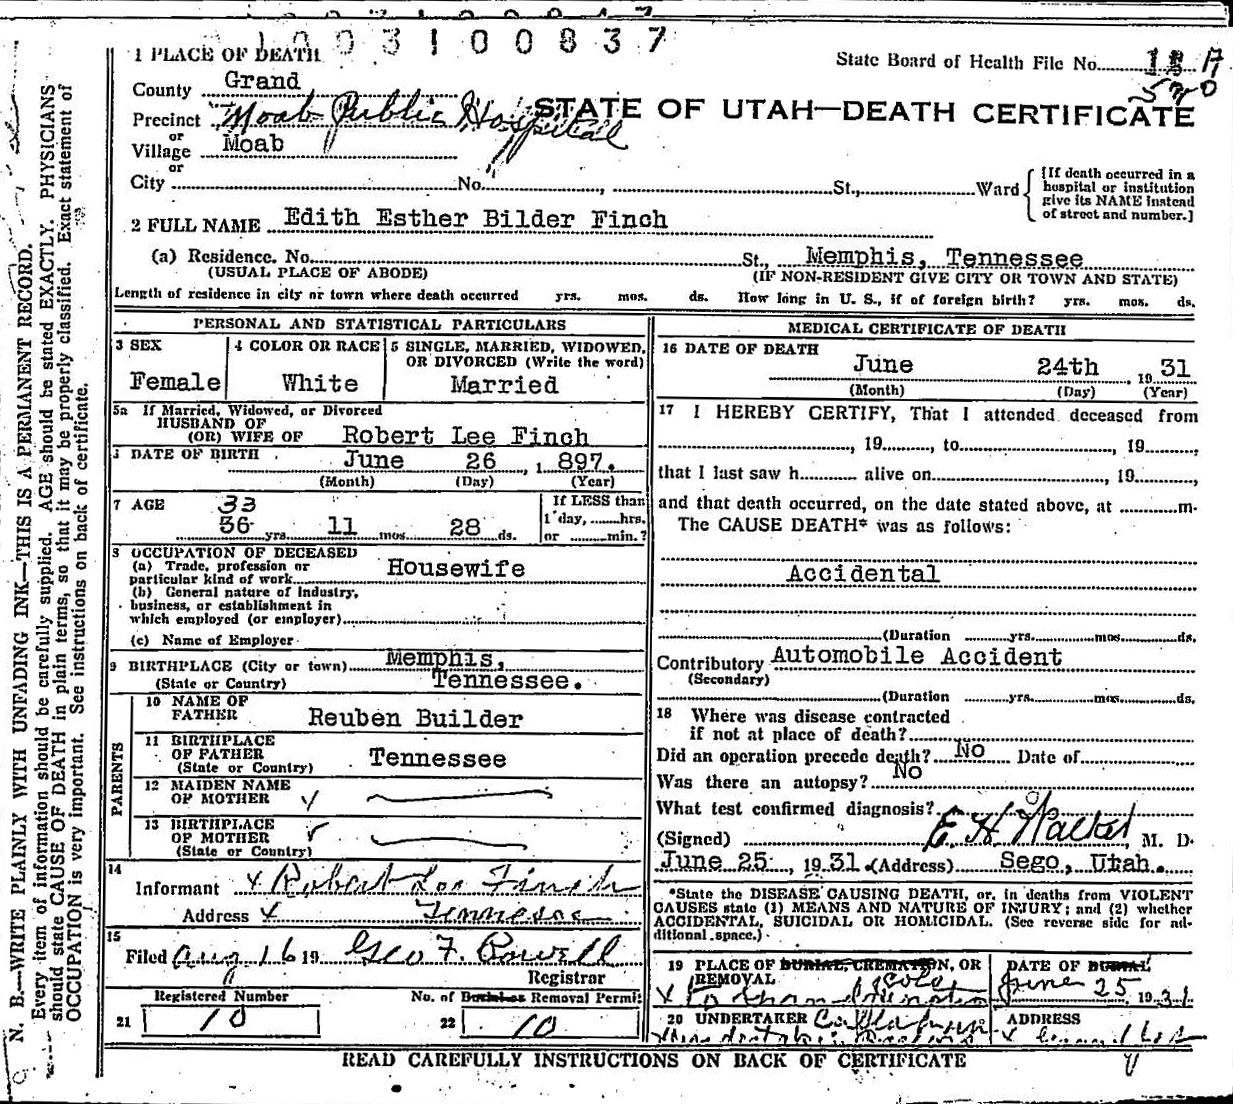 1003100837
1 PLACE OF DEATH
State Board of Health File No. 18 A
County Grand
530
STATE OF UTAH—DEATH CERTIFICATE
Precinct Moab Public Hospital
or
Village Moab
or
City No. , St., Ward
[If death occurred in a
hospital or institution
give its NAME instead
of street and number.]
2 FULL NAME Edith Esther Bilder Finch
(a) Residence. No. St., Memphis, Tennessee
(USUAL PLACE OF ABODE) (IF NON-RESIDENT GIVE CITY OR TOWN AND STATE)
Length of residence in city or town where death occurred yrs. mos. ds. How long in U. S., if of foreign birth? yrs. mos. ds.
PERSONAL AND STATISTICAL PARTICULARS
3 SEX
Female
4 COLOR OR RACE
White
5 SINGLE, MARRIED, WIDOWED,
OR DIVORCED (Write the word)
Married
5a If Married, Widowed, or Divorced
HUSBAND OF
(OR) WIFE OF Robert Lee Finch
DATE OF BIRTH June 26, 1897.
(Month) (Day) (Year)
7 AGE 33
36 yrs. 11 mos. 28 ds.
If LESS than
1 day, hrs.
or min.?
8 OCCUPATION OF DECEASED
(a) Trade, profession or
particular kind of work Housewife
(b) General nature of Industry,
business, or establishment in
which employed (or employer)
(c) Name of Employer
9 BIRTHPLACE (City or town) Memphis,
(State or Country) Tennessee.
PARENTS
10 NAME OF
FATHER Reuben Builder
11 BIRTHPLACE
OF FATHER Tennessee
(State or Country)
12 MAIDEN NAME
OF MOTHER
13 BIRTHPLACE
OF MOTHER
(State or Country)
14
Informant x Robert Lee Finch
Address x Tennessee
15
Filed Aug 16 19 Geo F. Powell
Registrar
Registered Number
21 10
No. of Burial or Removal Permit
22 10
MEDICAL CERTIFICATE OF DEATH
16 DATE OF DEATH
June 24th, 1931
(Month) (Day) (Year)
17 I HEREBY CERTIFY, That I attended deceased from
, 19 , to , 19 ,
that I last saw h alive on , 19 ,
and that death occurred, on the date stated above, at m.
The CAUSE DEATH* was as follows:
Accidental
(Duration yrs. mos. ds.
Contributory Automobile Accident
(Secondary)
(Duration yrs. mos. ds.
18 Where was disease contracted
if not at place of death?
Did an operation precede death? No Date of
Was there an autopsy? No
What test confirmed diagnosis?
(Signed) E. H. , M. D.
June 25, 1931 (Address) Sego, Utah.
*State the DISEASE CAUSING DEATH, or, in deaths from VIOLENT
CAUSES state (1) MEANS AND NATURE OF INJURY; and (2) whether
ACCIDENTAL, SUICIDAL OR HOMICIDAL. (See reverse side for ad-
ditional space.)
19 PLACE OF BURIAL, CREMATION, OR
REMOVAL
DATE OF BURIAL
June 25 1931
20 UNDERTAKER
ADDRESS
READ CAREFULLY INSTRUCTIONS ON BACK OF CERTIFICATE
N. B.—WRITE PLAINLY WITH UNFADING INK—THIS IS A PERMANENT RECORD.
Every item of information should be carefully supplied. AGE should be stated EXACTLY. PHYSICIANS
should state CAUSE OF DEATH in plain terms, so that it may be properly classified. Exact statement of
OCCUPATION is very important. See instructions on back of certificate.